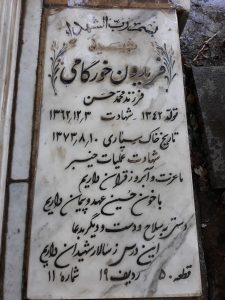 بحضرت الشهداء
شهید
فریدون خورگامی
فرزند محمدحسن
تولد ۱۳۴۲ شهادت ۱۳۶۲،۱۲،۳
تاریخ خاک سپاری ۱۳۷۳،۸،۱۰
شهادت عملیات خیبر
ما عزت و آبرو ز قران داریم
با خون حسین عهد و پیمان داریم
دستی به سلاح و دست دیگر به دعا
این درس ز سالار شهیدان داریم
قطعه ۵۰ ردیف ۱۹ شماره ۱۱